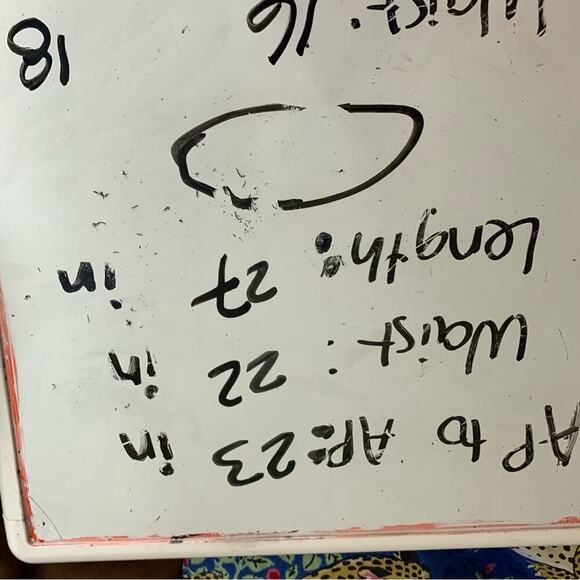 AP to AP: 23 in
Waist : 22 in
Length: 27 in
Waist: 16 18